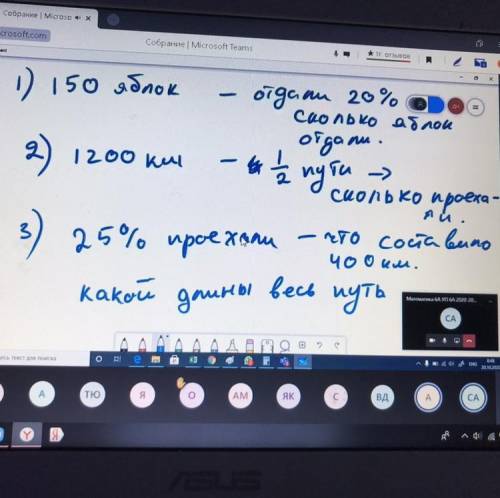 Собрание | Microso
crosoft.com
Собрание | Microsoft Teams
отзывов
1) 150 яблок – отдали 20%
сколько яблок
отдали.
2) 1200 км – 1/2 пути →
сколько проеха-
ли.
3) 25% проехали – что составило
400 км.
какой длины весь путь
Математика 6А
СА
А
ТЮ
Я
О
АМ
ЯК
С
ВД
А
СА
ASUS